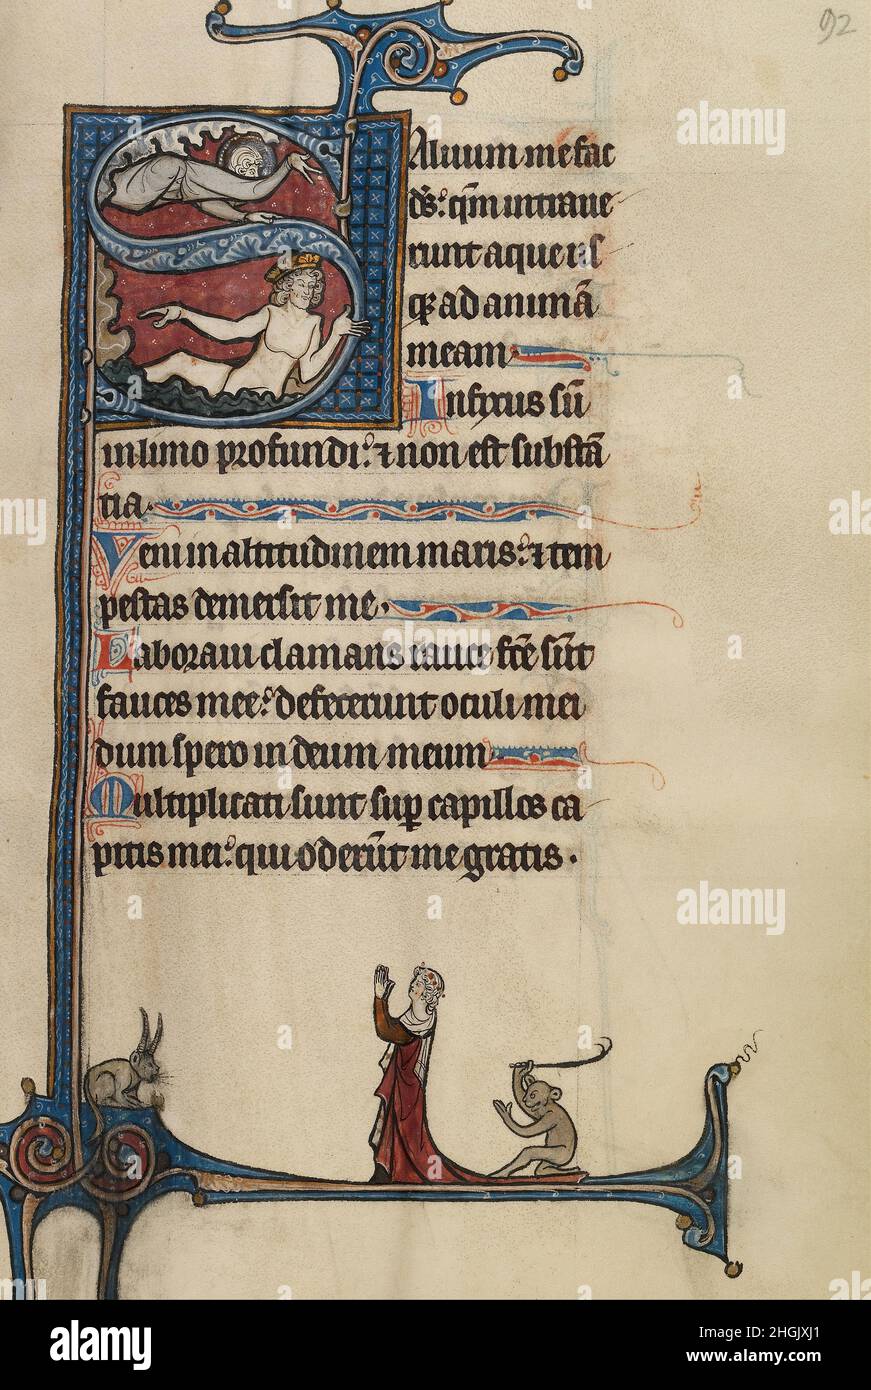 92
Saluum me fac
ds: qm intraue
runt aque us
q; ad animā
meam
Infixus sū
in limo profundi: ⁊ non est substā
tia.
Veni in altitudinem maris: ⁊ tem
pestas demersit me.
Laboraui clamans rauce fcē sūt
fauces mee: defecerunt oculi mei
dum spero in deum meum
Multiplicati sunt sup capillos ca
pitis mei: qui oderūt me gratis.
alamy
alamy
Image ID: 2HGJXJ1
www.alamy.com